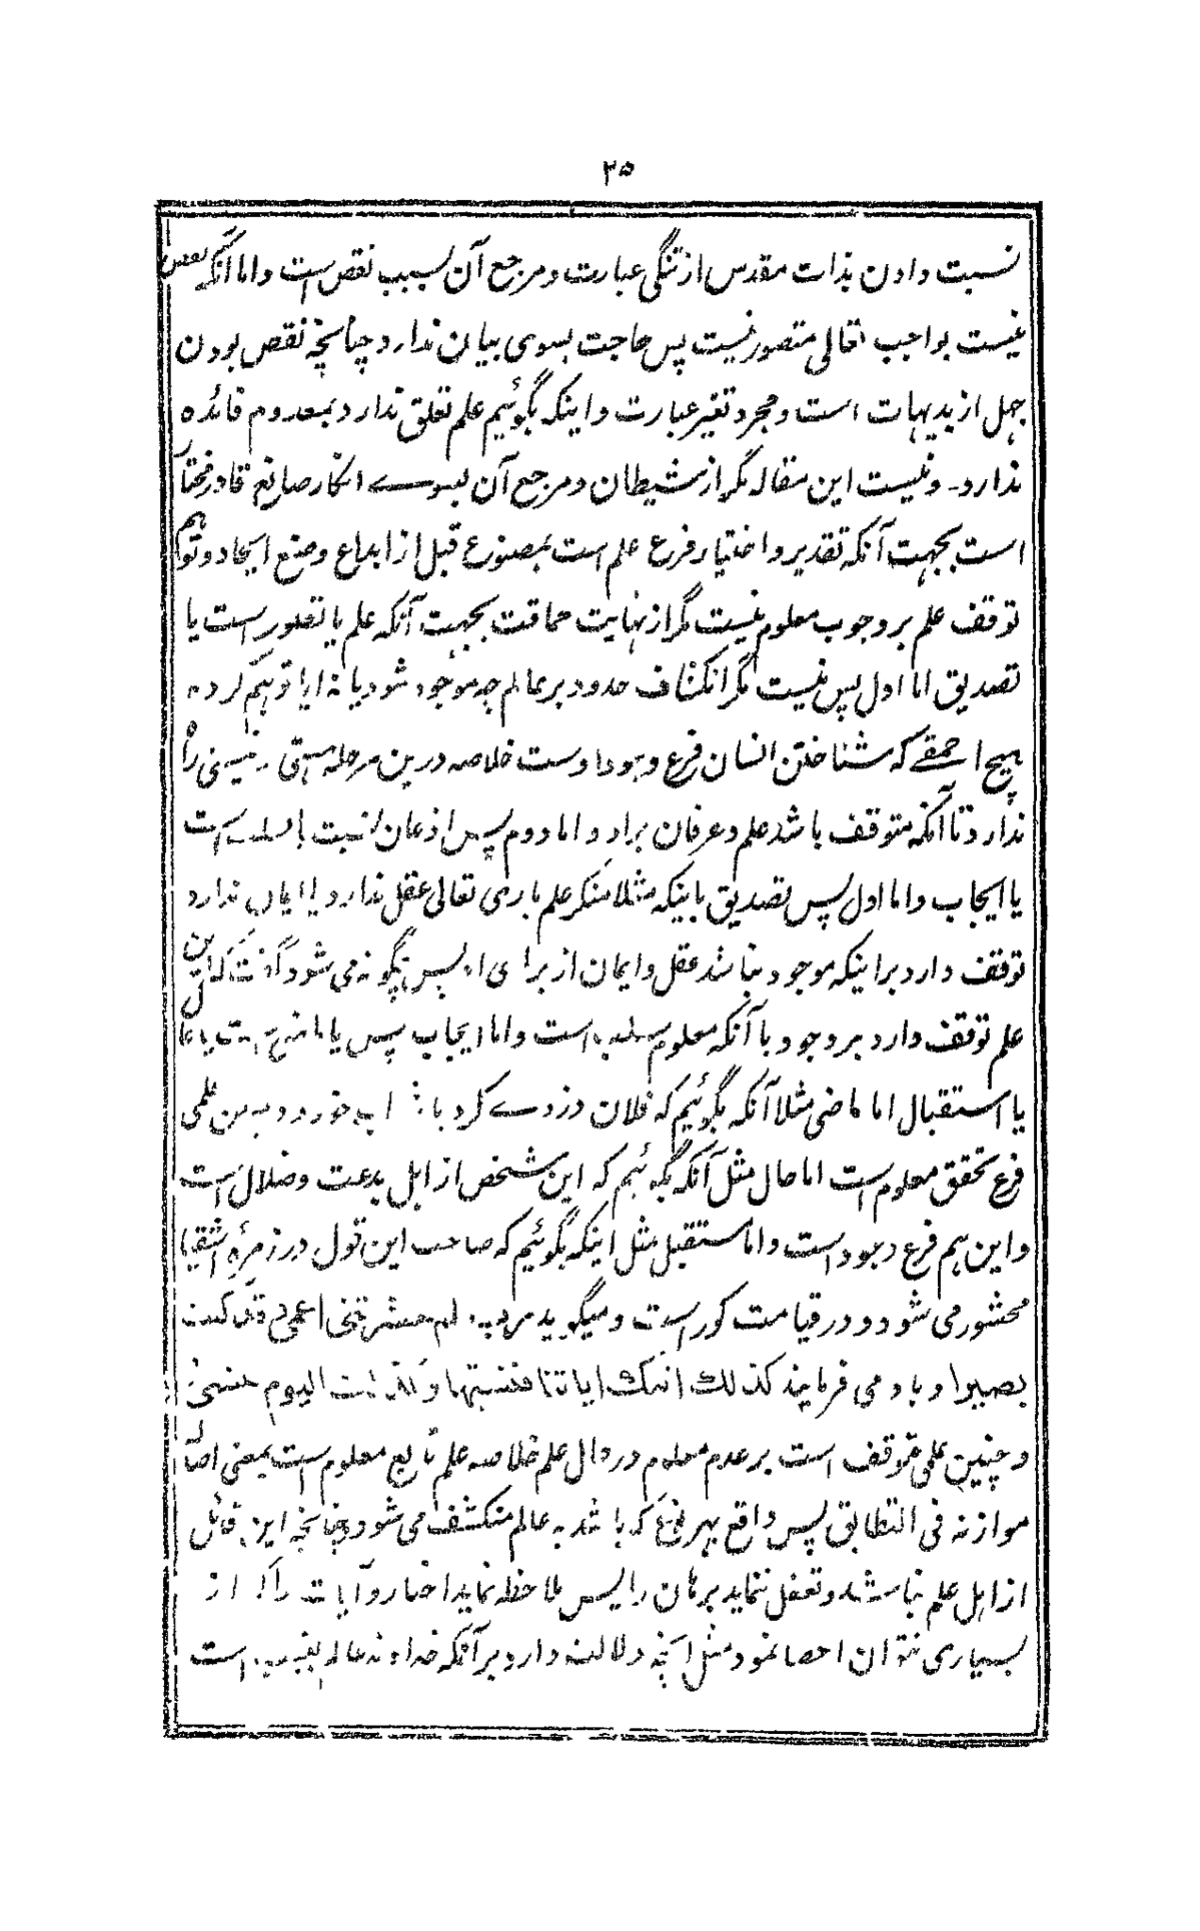 ۲۵
نسبت دادن بذات مقدس از تنگی عبارت و مرجع آن بسبب نقص است و اما آنکه نقص
نیست بواجب تعالی متصور نیست پس حاجت بسوی بیان ندارد چنانچه نقص بودن
جهل از بدیهات است و مجرد تغیر عبارت و اینکه بگوئیم علم تعلق ندارد بمعدوم فائده
ندارد۔ و نیست این مقاله مگر از شیطان و مرجع آن بسوے انکار صانع قادر مختار
است بجهت آنکه تقدیر و اختیار فرع علم است بمصنوع قبل از ابداع و صنع ایجاد و توهم
توقف علم بر وجوب معلوم نیست مگر از نهایت حماقت بجهت آنکه علم یا تصور است یا
تصدیق اما اول پس نیست مگر انکشاف حدود بر عالم چه موجود شود یا نه ایا توهم کرده
هیچ احمقے که شناختن انسان فرع وجود اوست خلاصه درین مرحله هستی و نیستی راه
ندارد تا آنکه متوقف باشد علم و عرفان براد و اما دوم پس اذعان نسبت یا سلب است
یا ایجاب و اما اول پس تصدیق باینکه مثلا منکر علم باری تعالی عقل ندارد یا ایمان ندارد
توقف دارد بر اینکه موجود نباشد عقل و ایمان از برای او پس چگونه می شود گفت که این
علم توقف دارد بر وجود با آنکه معلوم سلب است و اما ایجاب پس یا ماضی است یا حال
یا استقبال اما ماضی مثلا آنکه بگوئیم که فلان دزدے کرد یا خورد علمی
فرع تحقق معلوم است اما حال مثل آنکه بگوئیم که این شخص از اهل بدعت و ضلال است
و این هم فرع وجود است و اما مستقبل مثل اینکه بگوئیم که صاحب این قول در زمرۀ اشقیا
محشور می شود و در قیامت کور است و میگوید لم حشرتنی اعمی و قد کنت
بصیرا و باو می فرمایند کذلک اتتک ایاتنا فنسیتها و کذلک الیوم تنسی
و چنین علمی موقوف است بر عدم معلوم در حال علم خلاصه علم تابع معلوم است بمعنی اصالة
موازنه فی التطابق پس واقع بهر نوع که باشد به عالم منکشف می شود چنانچه این قائل
از اهل علم نباشد و تعقل ننماید برهان را پس ملاحظه نماید اخبار و آیات را که از
بسیاری نتوان احصا نمود مثل آنچه دلالت دارد بر آنکه خداوند عالم بغیب است